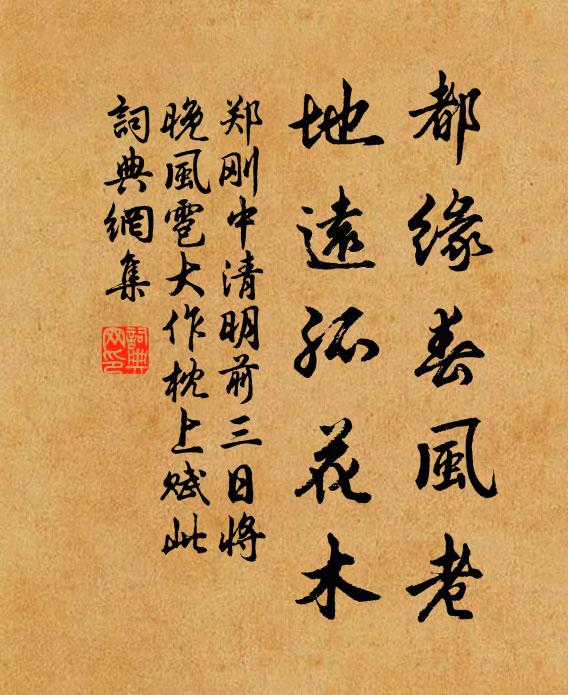 都缘春風老
地遠孤花木
郑刚中清明前三日将
晚風雹大作枕上赋此
詞典網集
詞典
网印